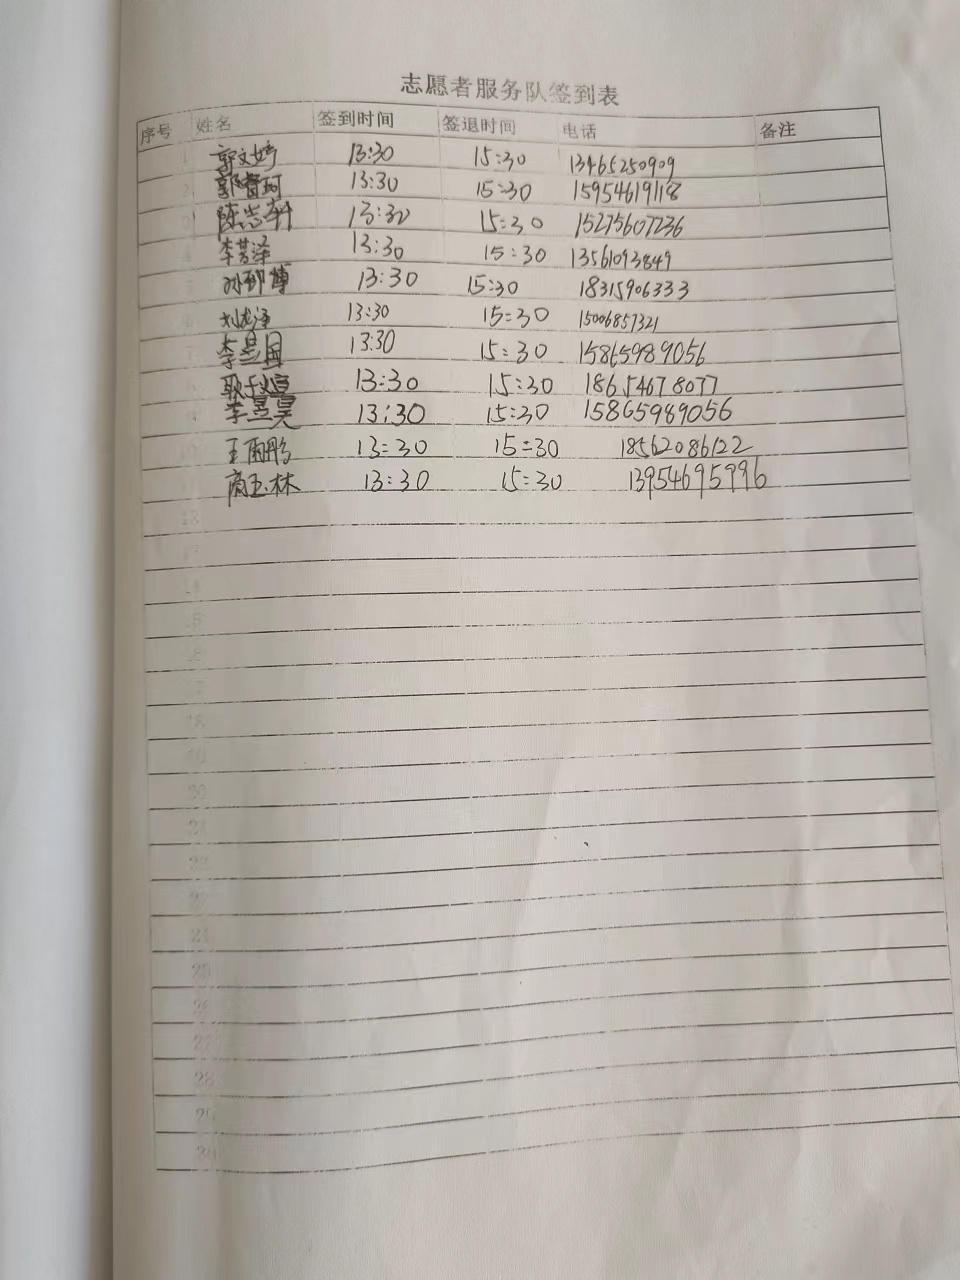 志愿者服务队签到表
序号 姓名 签到时间 签退时间 电话 备注
1 郭文婷 13:30 15:30 13465250909
2 郭睿珂 13:30 15:30 15954619118
3 陈志轩 13:30 15:30 15275607236
4 李芸泽 13:30 15:30 13561093849
5 孙 博 13:30 15:30 18315906333
6 刘龙泽 13:30 15:30 15006857321
7 李昱国 13:30 15:30 15865989056
8 耿 13:30 15:30 18654678077
9 李昱昊 13:30 15:30 15865989056
10 王雨彤 13:30 15:30 18562086122
11 商玉林 13:30 15:30 13954695996
13
14
15
18
20
21
22
24
25
26
27
28
29
30